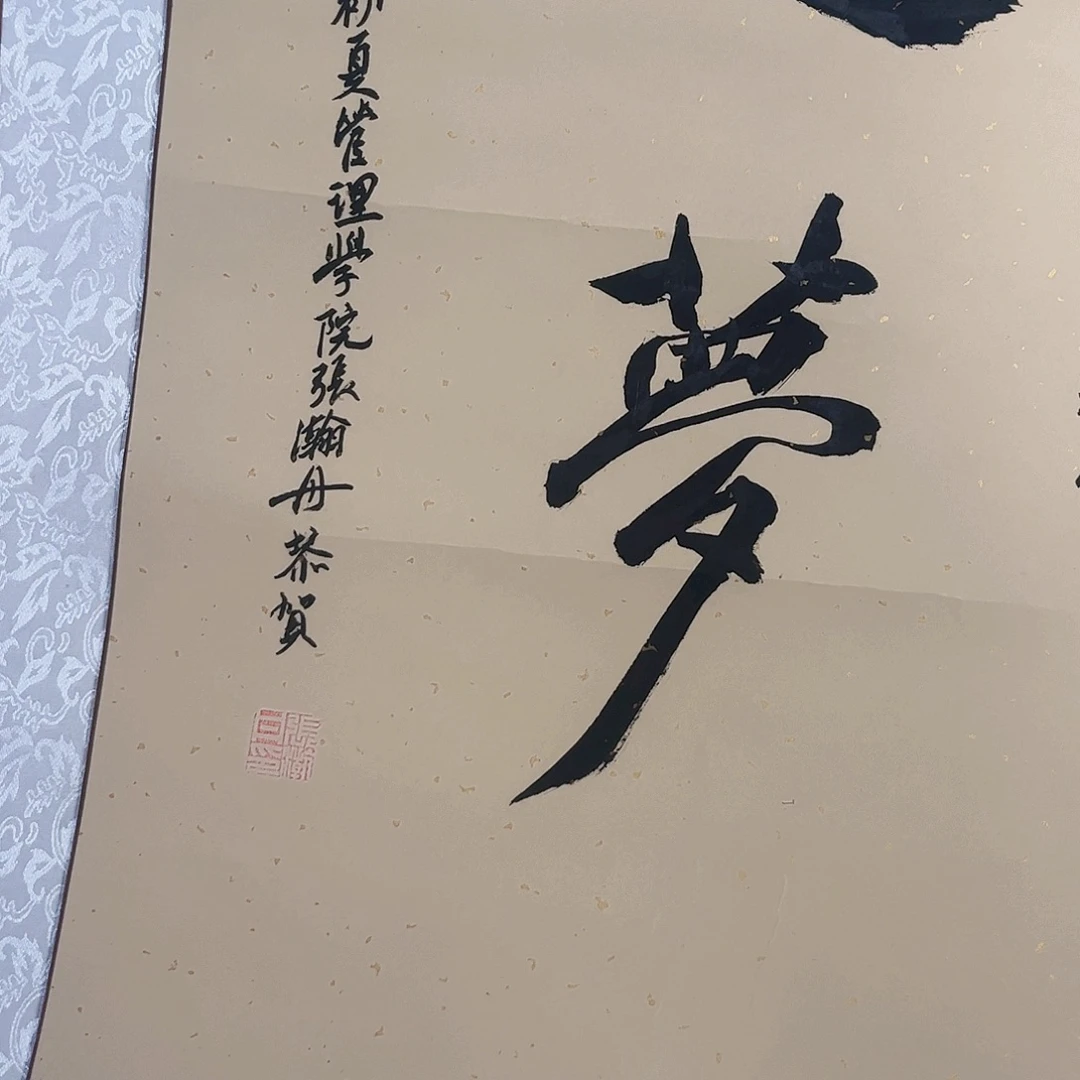 夢
夏管理學院張瀚丹恭賀